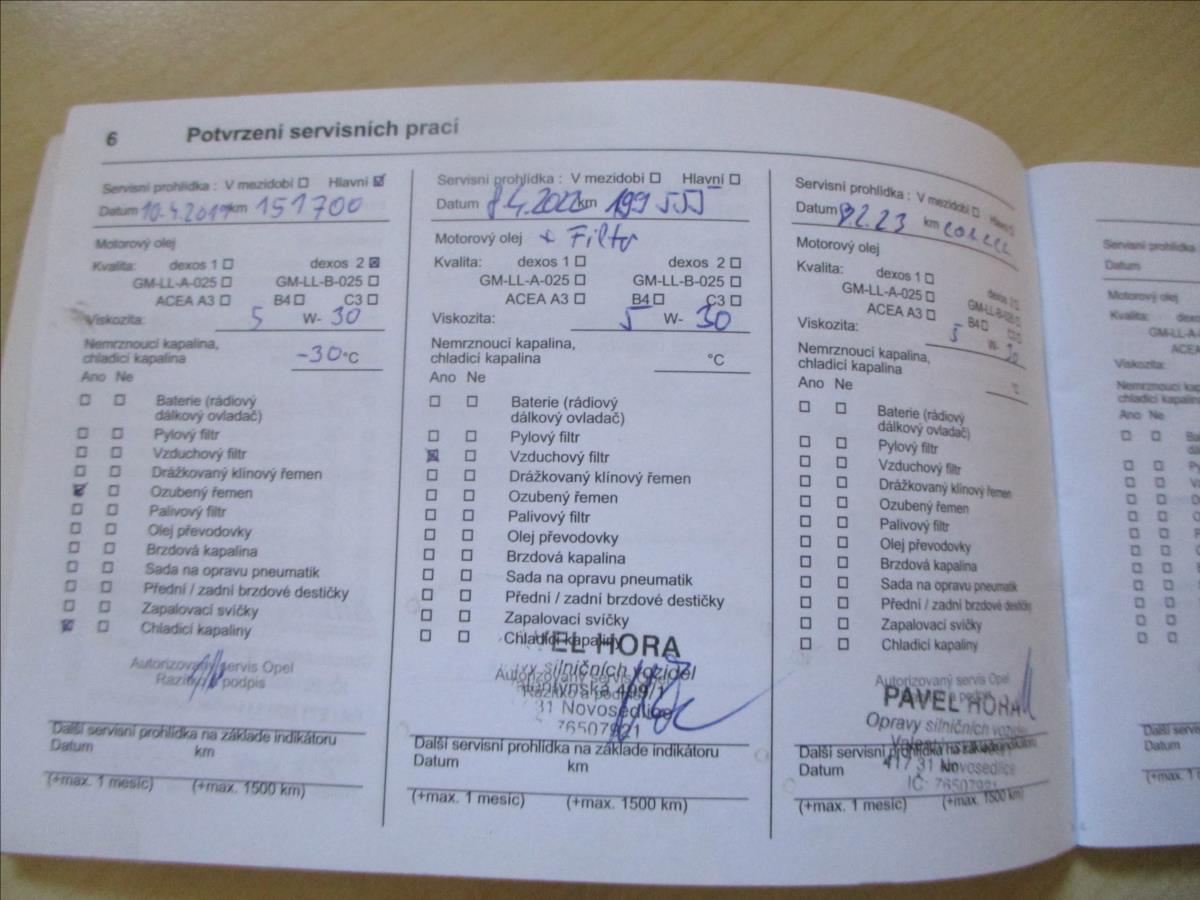 6 Potvrzení servisních prací
Servisní prohlídka : V mezidobí ☐ Hlavní ☑
Datum 10.4.2019 km 151700
Motorový olej
Kvalita: dexos 1 ☐ dexos 2 ☒
GM-LL-A-025 ☐ GM-LL-B-025 ☐
ACEA A3 ☐ B4 ☐ C3 ☐
Viskozita: 5 W- 30
Nemrznoucí kapalina,
chladicí kapalina -30 °C
Ano Ne
☐ ☐ Baterie (rádiový
dálkový ovladač)
☐ ☐ Pylový filtr
☐ ☐ Vzduchový filtr
☐ ☐ Drážkovaný klínový řemen
☑ ☐ Ozubený řemen
☐ ☐ Palivový filtr
☐ ☐ Olej převodovky
☐ ☐ Brzdová kapalina
☐ ☐ Sada na opravu pneumatik
☐ ☐ Přední / zadní brzdové destičky
☐ ☐ Zapalovací svíčky
☒ ☐ Chladicí kapaliny
Autorizovaný servis Opel
Razítko podpis
Další servisní prohlídka na základe indikátoru
Datum km
(+max. 1 mesíc) (+max. 1500 km)
Servisní prohlídka : V mezidobí ☐ Hlavní ☐
Datum 8.4.2022 km 199 555
Motorový olej + Filtr
Kvalita: dexos 1 ☐ dexos 2 ☐
GM-LL-A-025 ☐ GM-LL-B-025 ☐
ACEA A3 ☐ B4 ☐ C3 ☐
Viskozita: 5 W- 30
Nemrznoucí kapalina,
chladicí kapalina °C
Ano Ne
☐ ☐ Baterie (rádiový
dálkový ovladač)
☐ ☐ Pylový filtr
☒ ☐ Vzduchový filtr
☐ ☐ Drážkovaný klínový řemen
☐ ☐ Ozubený řemen
☐ ☐ Palivový filtr
☐ ☐ Olej převodovky
☐ ☐ Brzdová kapalina
☐ ☐ Sada na opravu pneumatik
☐ ☐ Přední / zadní brzdové destičky
☐ ☐ Zapalovací svíčky
☐ ☐ Chladicí kapaliny
EL HORA
silničních vozidel
Autorizovaný servis
Razítko a podpis
499/1
31 Novosedlice
76507921
Další servisní prohlídka na základe indikátoru
Datum km
(+max. 1 mesíc) (+max. 1500 km)
Servisní prohlídka : V mezidobí ☐ Hlavní ☐
Datum 8.2.23 km
Motorový olej
Kvalita: dexos 1 ☐ dexos 2 ☐
GM-LL-A-025 ☐ GM-LL-B-025 ☐
ACEA A3 ☐ B4 ☐
Viskozita: 5 W- 30
Nemrznoucí kapalina,
chladicí kapalina °C
Ano Ne
☐ ☐ Baterie (rádiový
dálkový ovladač)
☐ ☐ Pylový filtr
☐ ☐ Vzduchový filtr
☐ ☐ Drážkovaný klínový řemen
☐ ☐ Ozubený řemen
☐ ☐ Palivový filtr
☐ ☐ Olej převodovky
☐ ☐ Brzdová kapalina
☐ ☐ Sada na opravu pneumatik
☐ ☐ Přední / zadní brzdové destičky
☐ ☐ Zapalovací svíčky
☐ ☐ Chladicí kapaliny
Autorizovaný servis Opel
PAVEL HORA
Opravy silničních vozidel
Další servisní prohlídka na základe indikátoru
Datum km
417 31 Novosedlice
IČ: 76507921
(+max. 1 mesíc) (+max. 1500 km)
Servisní prohlídka
Datum
Motorový olej
Kvalita:
Viskozita:
Nemrznoucí kapalina
chladicí kapalina
Ano Ne
Datum